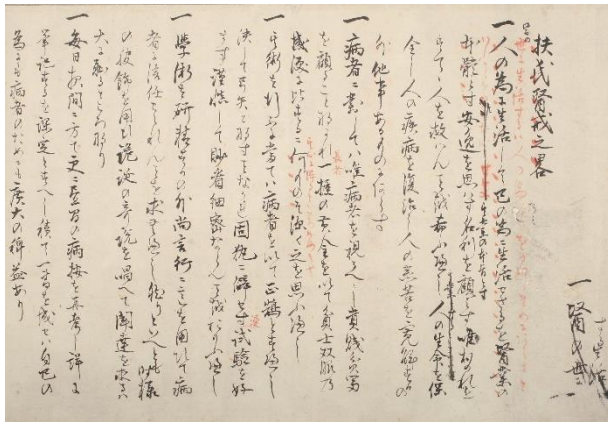 扶氏醫戒之畧
一人の為に生活して己の為に生活せざるを醫業の
本體とす安逸を思はす名利を顧みす唯おのれを
すてゝ人を救はんことを希ふへし人の生命を保
全し人の疾病を復治し人の患苦を寛解するの
外他事あるものに非す
一病者に對しては唯病者を視へし貴賤貧富
を顧ること勿れ一握の黄金を以て貧士双眼の
感涙に比するに何ものそ深く之を思ふへし
一其術を行ふに當ては病者を以て正鵠とすへし
決して弓矢となすことなかれ固執に僻せす試驗を好
ます謹慎して眇看細密ならんことをおもふへし
一學術を研精するの外尚言行に意を用ひて病
者に信任せられんことを求むへし然りといへとも時様
の服飾を用ひ詭誕の奇説を唱へて聞達を求るは
大に恥るところなり
一毎日夜間に方て更に昼間の病按を再考し詳に
筆記するを課定とすへし積て一書を成せは自己の
為にも病者のためにも廣大の裨益あり